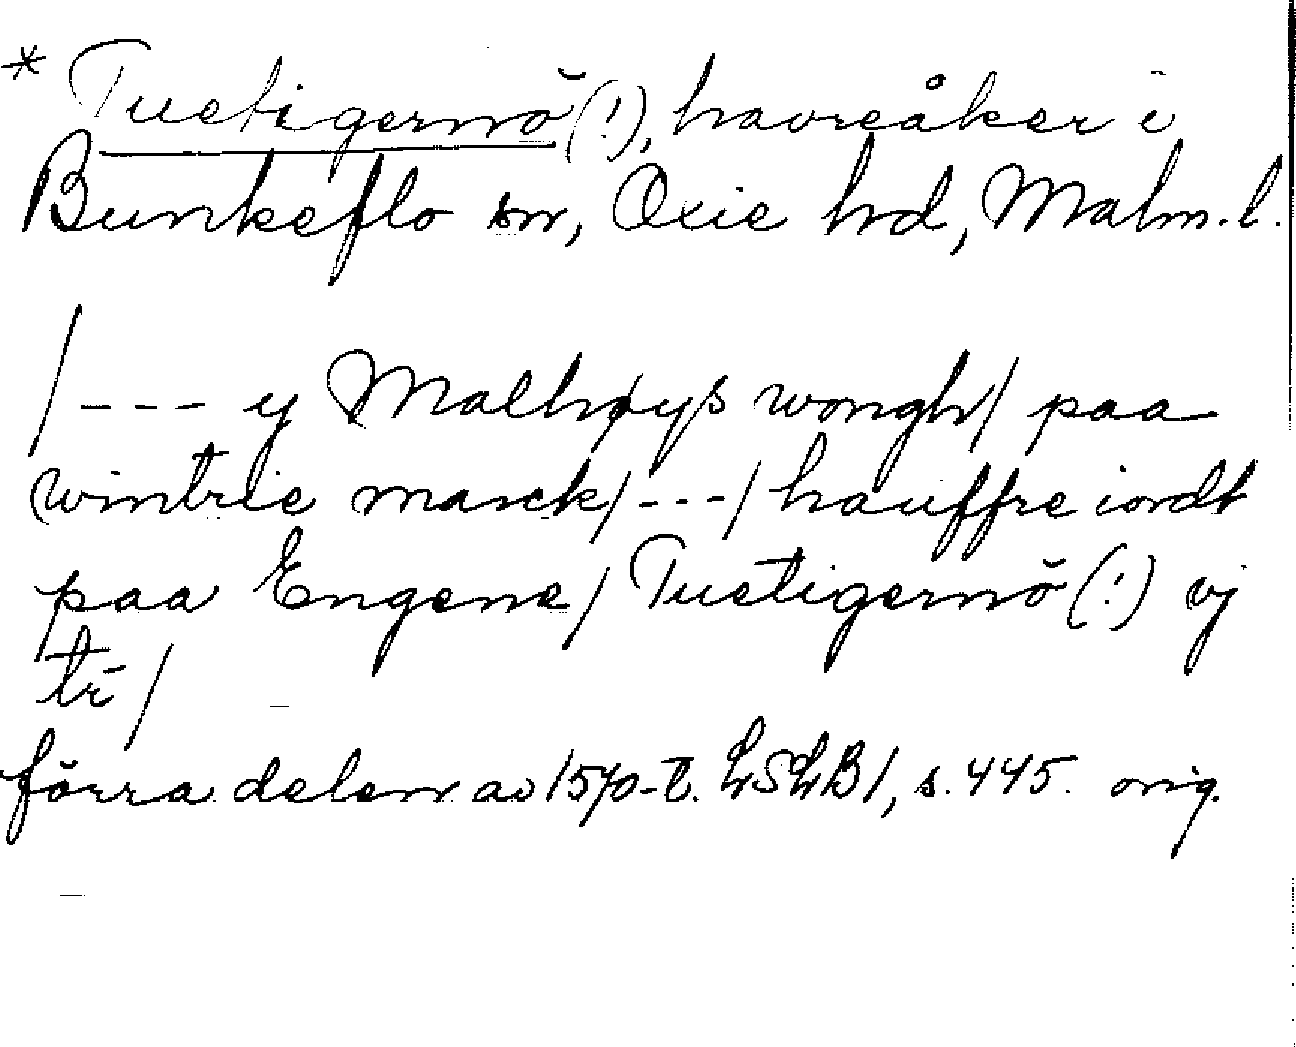 * Tuetigernö (!), havreåker i
Bunkeflo sn, Oxie hd, Malm. l.
/--- y Malhøyß wongh/ paa
wintrie marck/---/hauffre iordt
paa Engene/ Tuetigernö (!) vj
tr̄/
förra delen av 1570-t. LSLB1, s. 445. orig.